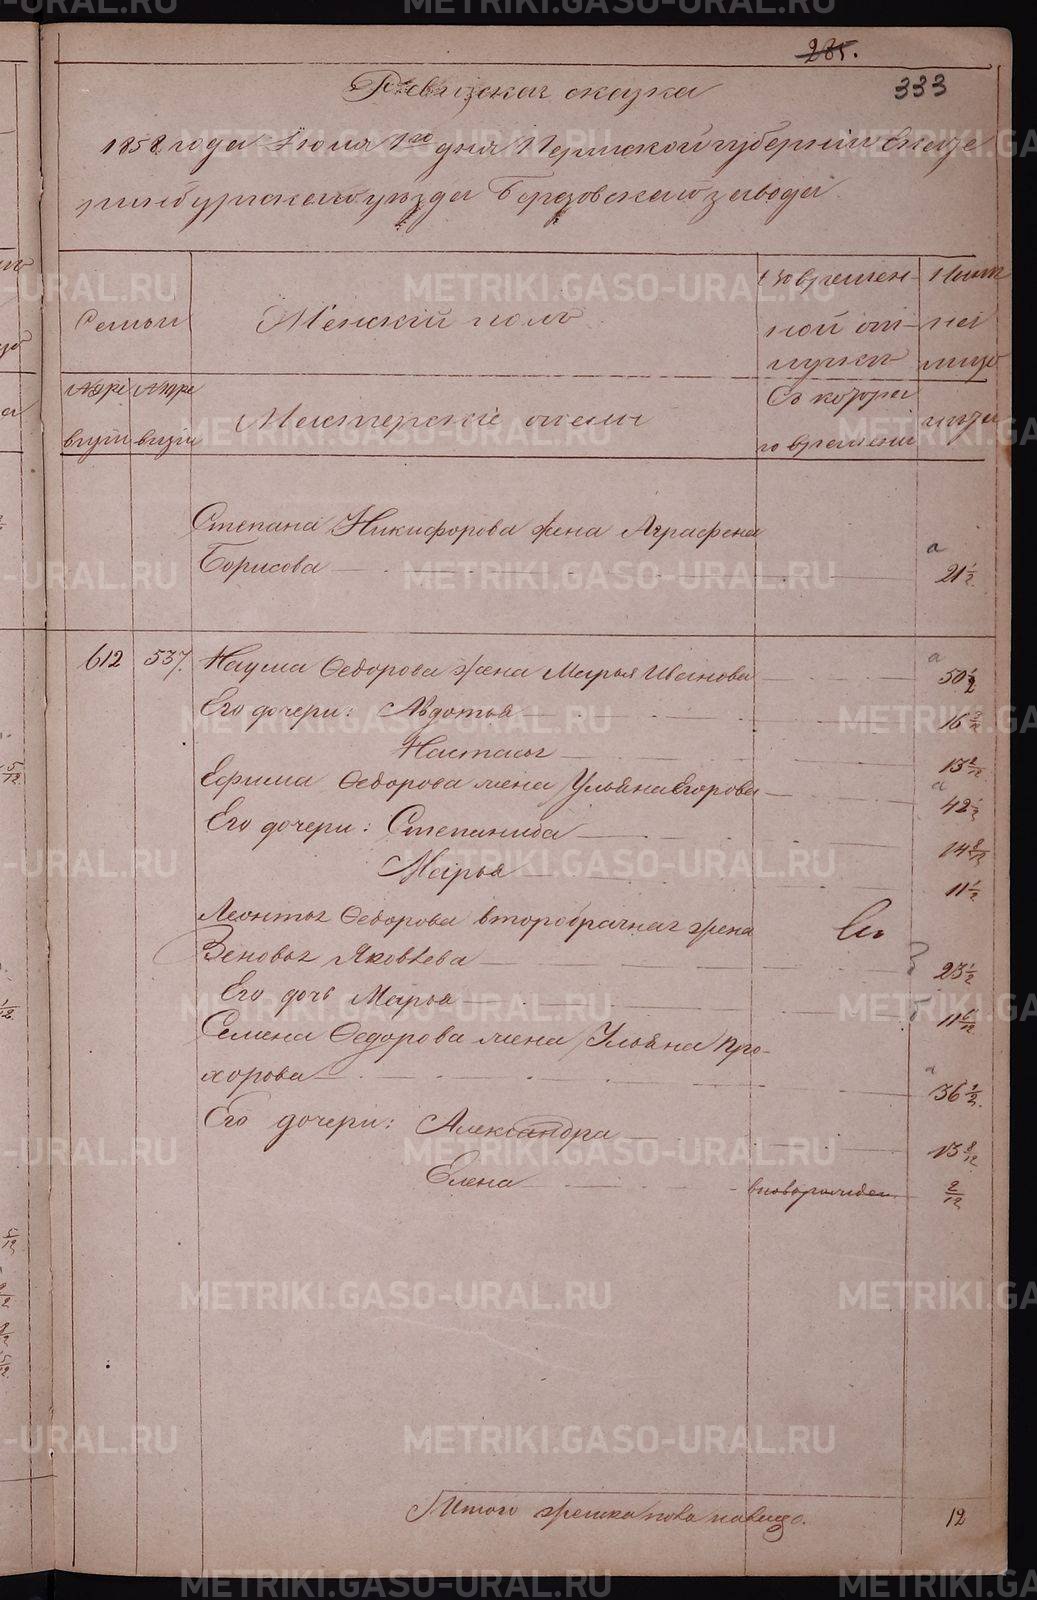 285.
333
Ревизская сказка
1858 года Июля 1го дня Пермской губернии Екате
ринбургского уезда Березовского завода
Семьи
Женский полъ
Во времен-
ной от-
лучке
Ныне
на
лицо
Мастерские жены
Съ которо
го времени
лета
Степана Никифорова жена Аграфена
Борисова
21 1/2
612
537.
Наума Федорова жена Марья Иванова
50 1/2
Его дочери: Авдотья
16
Настасья
13
Ефима Федорова жена Ульяна Егорова
42 1/2
Его дочери: Степанида
14 8/12
Марья
11 1/2
Леонтья Федорова второбрачная жена
Зеновья Яковлева
23 1/2
Его дочь Марья
11 6/12
Семена Федорова жена Ульяна Про-
хорова
36 1/2.
Его дочери: Александра
13 8/12
Елена
вноворожден.
2/12
Итого женска пола налицо.
12
METRIKI.GASO-URAL.RU